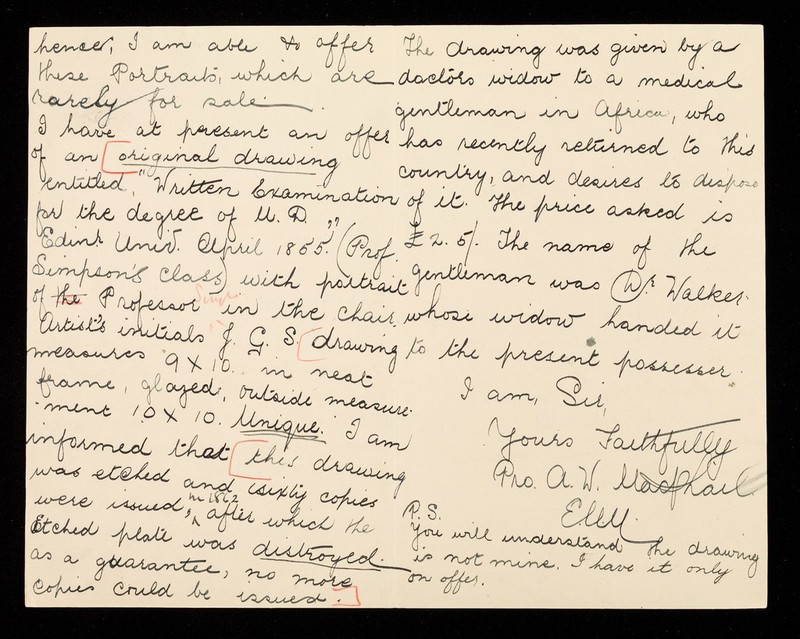 hence, I am able to offer
these Portraits, which are
rarely for sale.
I have at present an offer
of an original drawing
entitled, "Written Examination
for the degree of M.D."
Edinr Univ. April 1855. (Prof.
Simpson's class) with portrait
of the Professor in the chair.
Artist's initials J. G. S. drawing
measures 9 X 10. in neat
frame, glazed, outside measure-
ment 10 X 10. Unique. I am
informed that this drawing
was etched and sixty copies
were issued, in 1862 after which the
Etched plate was distroyed.
as a guarantee, no more
copies could be issued.
The drawing was given by a
doctors widow to a medical
gentleman in Africa, who
has recently returned to this
country, and desires to dispose
of it. The price asked is
£2. 5/. The name of the
gentleman was Dr. Walker.
whose widow handed it
to the present possesser.
I am, Sir,
Yours Faithfully
Pro. A. W. Macphail.
EMM
P.S.
You will understand the drawing
is not mine. I have it only
on offer.